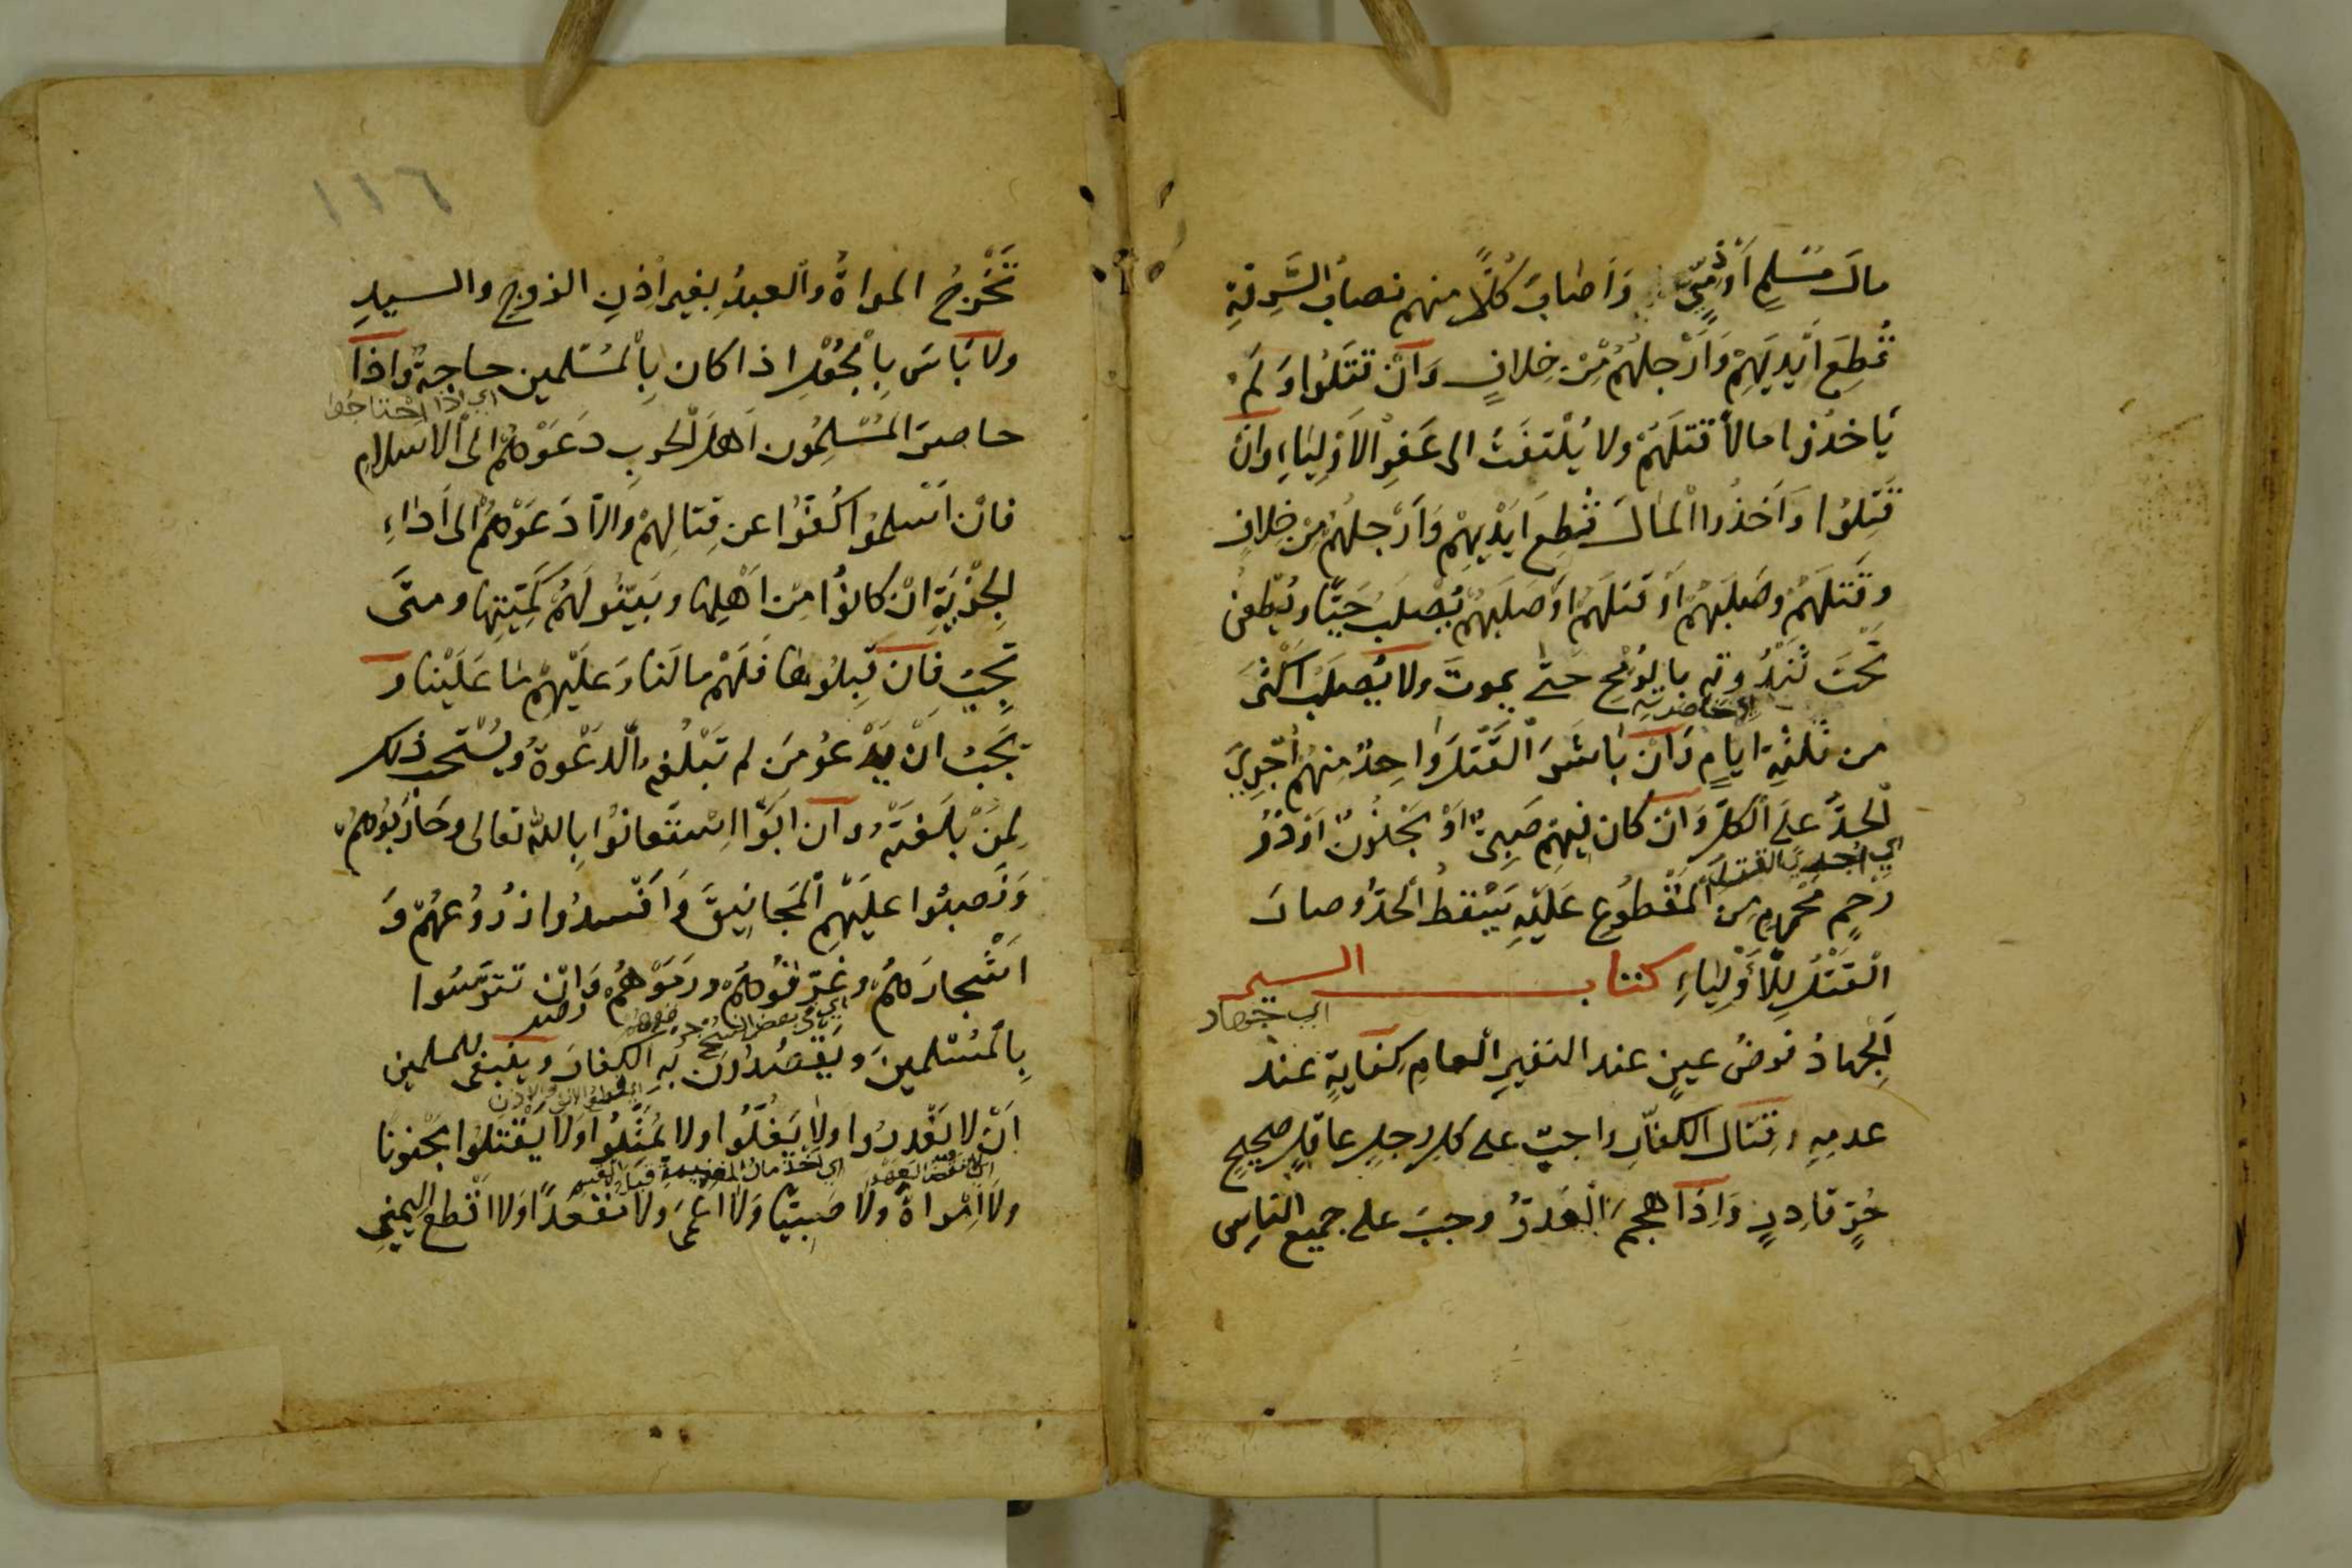 مالَ مُسْلِمٍ اَوْ ذِمِّيٍّ وَاَصَابَ كُلًّا منهم نصابُ السَّرِقَةِ
قُطِعَ اَيْدِيَهِمْ وَاَرْجلُهُمْ مِنْ خِلافٍ وَاِنْ قتَلُوا وَلَمْ
يَاخذُوا مالاً قتلَهُمْ ولا يُلْتَفَتُ الى عَفوِ الاَوْلِيَاءِ وان
قَتَلُوا وَاَخَذُوا المالَ قُطِعَ اَيْدِيهِمْ وَاَرْجلُهُمْ مِنْ خِلافٍ
وقَتَلَهُمْ وصَلَبَهُمْ اَوْ قتلَهُمْ اَوْ صَلَبَهُمْ يُصْلَبُ حَيًّا ويُطعنُ
تَحْتَ ثَنْدُوتِهِ بالرُمْحِ حَتَّى يموتَ ولا يُصْلَبُ اَكْثَرَ
اي خاصرته
من ثلثةِ ايامٍ وَاِنْ بَاشَرَ الْقَتْلَ وَاحِدٌ مِنهُمْ اُجْرِيَ
الْحَدُّ علَى الكلِّ وَان كان فيهِم صَبِيٌّ اَوْ مَجْنُونٌ اَوْ ذُو
اي اجري القتل
رَحِمٍ مَحْرَمٍ مِنَ الْمَقْطُوعِ عَلَيْهِ يَسْقطُ الْحَدُّ وصارَ
الْقَتْلُ لِلْاَوْلِيَاءِ كتاب السير
اي جهاد
اَلْجِهادُ فرضُ عينٍ عند النفيرِ العامِ كِفايةٍ عند
عدمِهِ وقتالُ الكفّارِ واجبٌ على كلِ رجلٍ عاقلٍ صحيحٍ
حُرٍّ قادِرٍ وَاِذَا هجمَ الْعَدُوُّ وجبَ على جميعِ الناسِ
١١٦
تَخْرُجُ المراةُ والعبدُ بغيرِ اذنِ الزوجِ والسيدِ
ولا بَاسَ بِالْجُعْلِ اذا كان بِالْمُسْلمين حاجةٌ واذا
اي اذا احتاجوا
حاصرَ المُسْلِمُون اَهلَ الحربِ دَعَوْهُمْ الى الاسلامِ
فان اَسْلمُوا كَفُّوا عن قِتالِهِمْ وَالاَّ دَعَوْهُمْ الى اَدَاءِ
الجِزْيَةِ انْ كانوُا مِنْ اَهْلِها ويَبيّنُو لَهُمْ كَمِّيَّتِها ومتَى
تجِبُ فان قبِلُوها فَلَهُمْ مالَنا وَعلَيْهِمْ ما عَلَيْنا وَ
يَجِبُ انْ يَدْعُو مَن لم تَبْلُغهُ الدَّعْوةُ ويُسْتحب ذلك
لِمَنْ بَلَغَتْهُ وان ابَوْا اِسْتَعانُوا بِاللهِ تعالى وحَارَبُوهُمْ
وَنَصبُوا عليَهِمِ الْمَجانِيقَ وَاَفْسدُوا زُرُوعَهُمْ وَ
اَشْجارَهُمْ وغرّقوُهُمْ ورَمَوْهُمْ وَاِنْ تترّسُوا
اي في بعض النسخ
بِالْمُسْلمينَ ويَقصُدُونَ بِهِ الكفارَ وينبغى للمسلمين
اي قطع الانف والاذن
اَنْ لا يَغْدِرُوا ولا يَغُلُّوا ولا يُمَثِّلُوا ولا يَقتلوا مَجْنونا
اي نقض العهد اي اخذ مال الغنيمة قبل القسم
ولا اِمْراةً ولا صَبِيًّا ولا اعْمَى ولا مُقْعَدًا ولا اقْطع اليمينِ